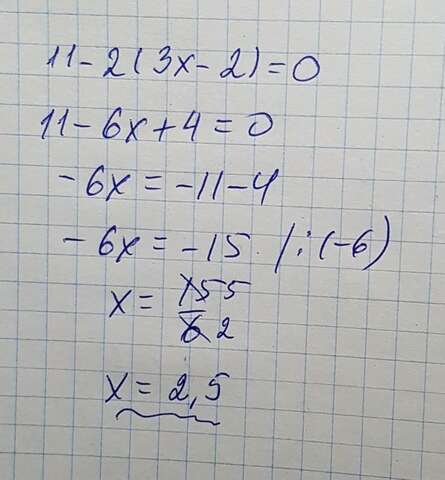 11-2(3x-2)=0
11-6x+4=0
-6x=-11-4
-6x=-15 /:(-6)
x= 15 5
6 2
x=2,5